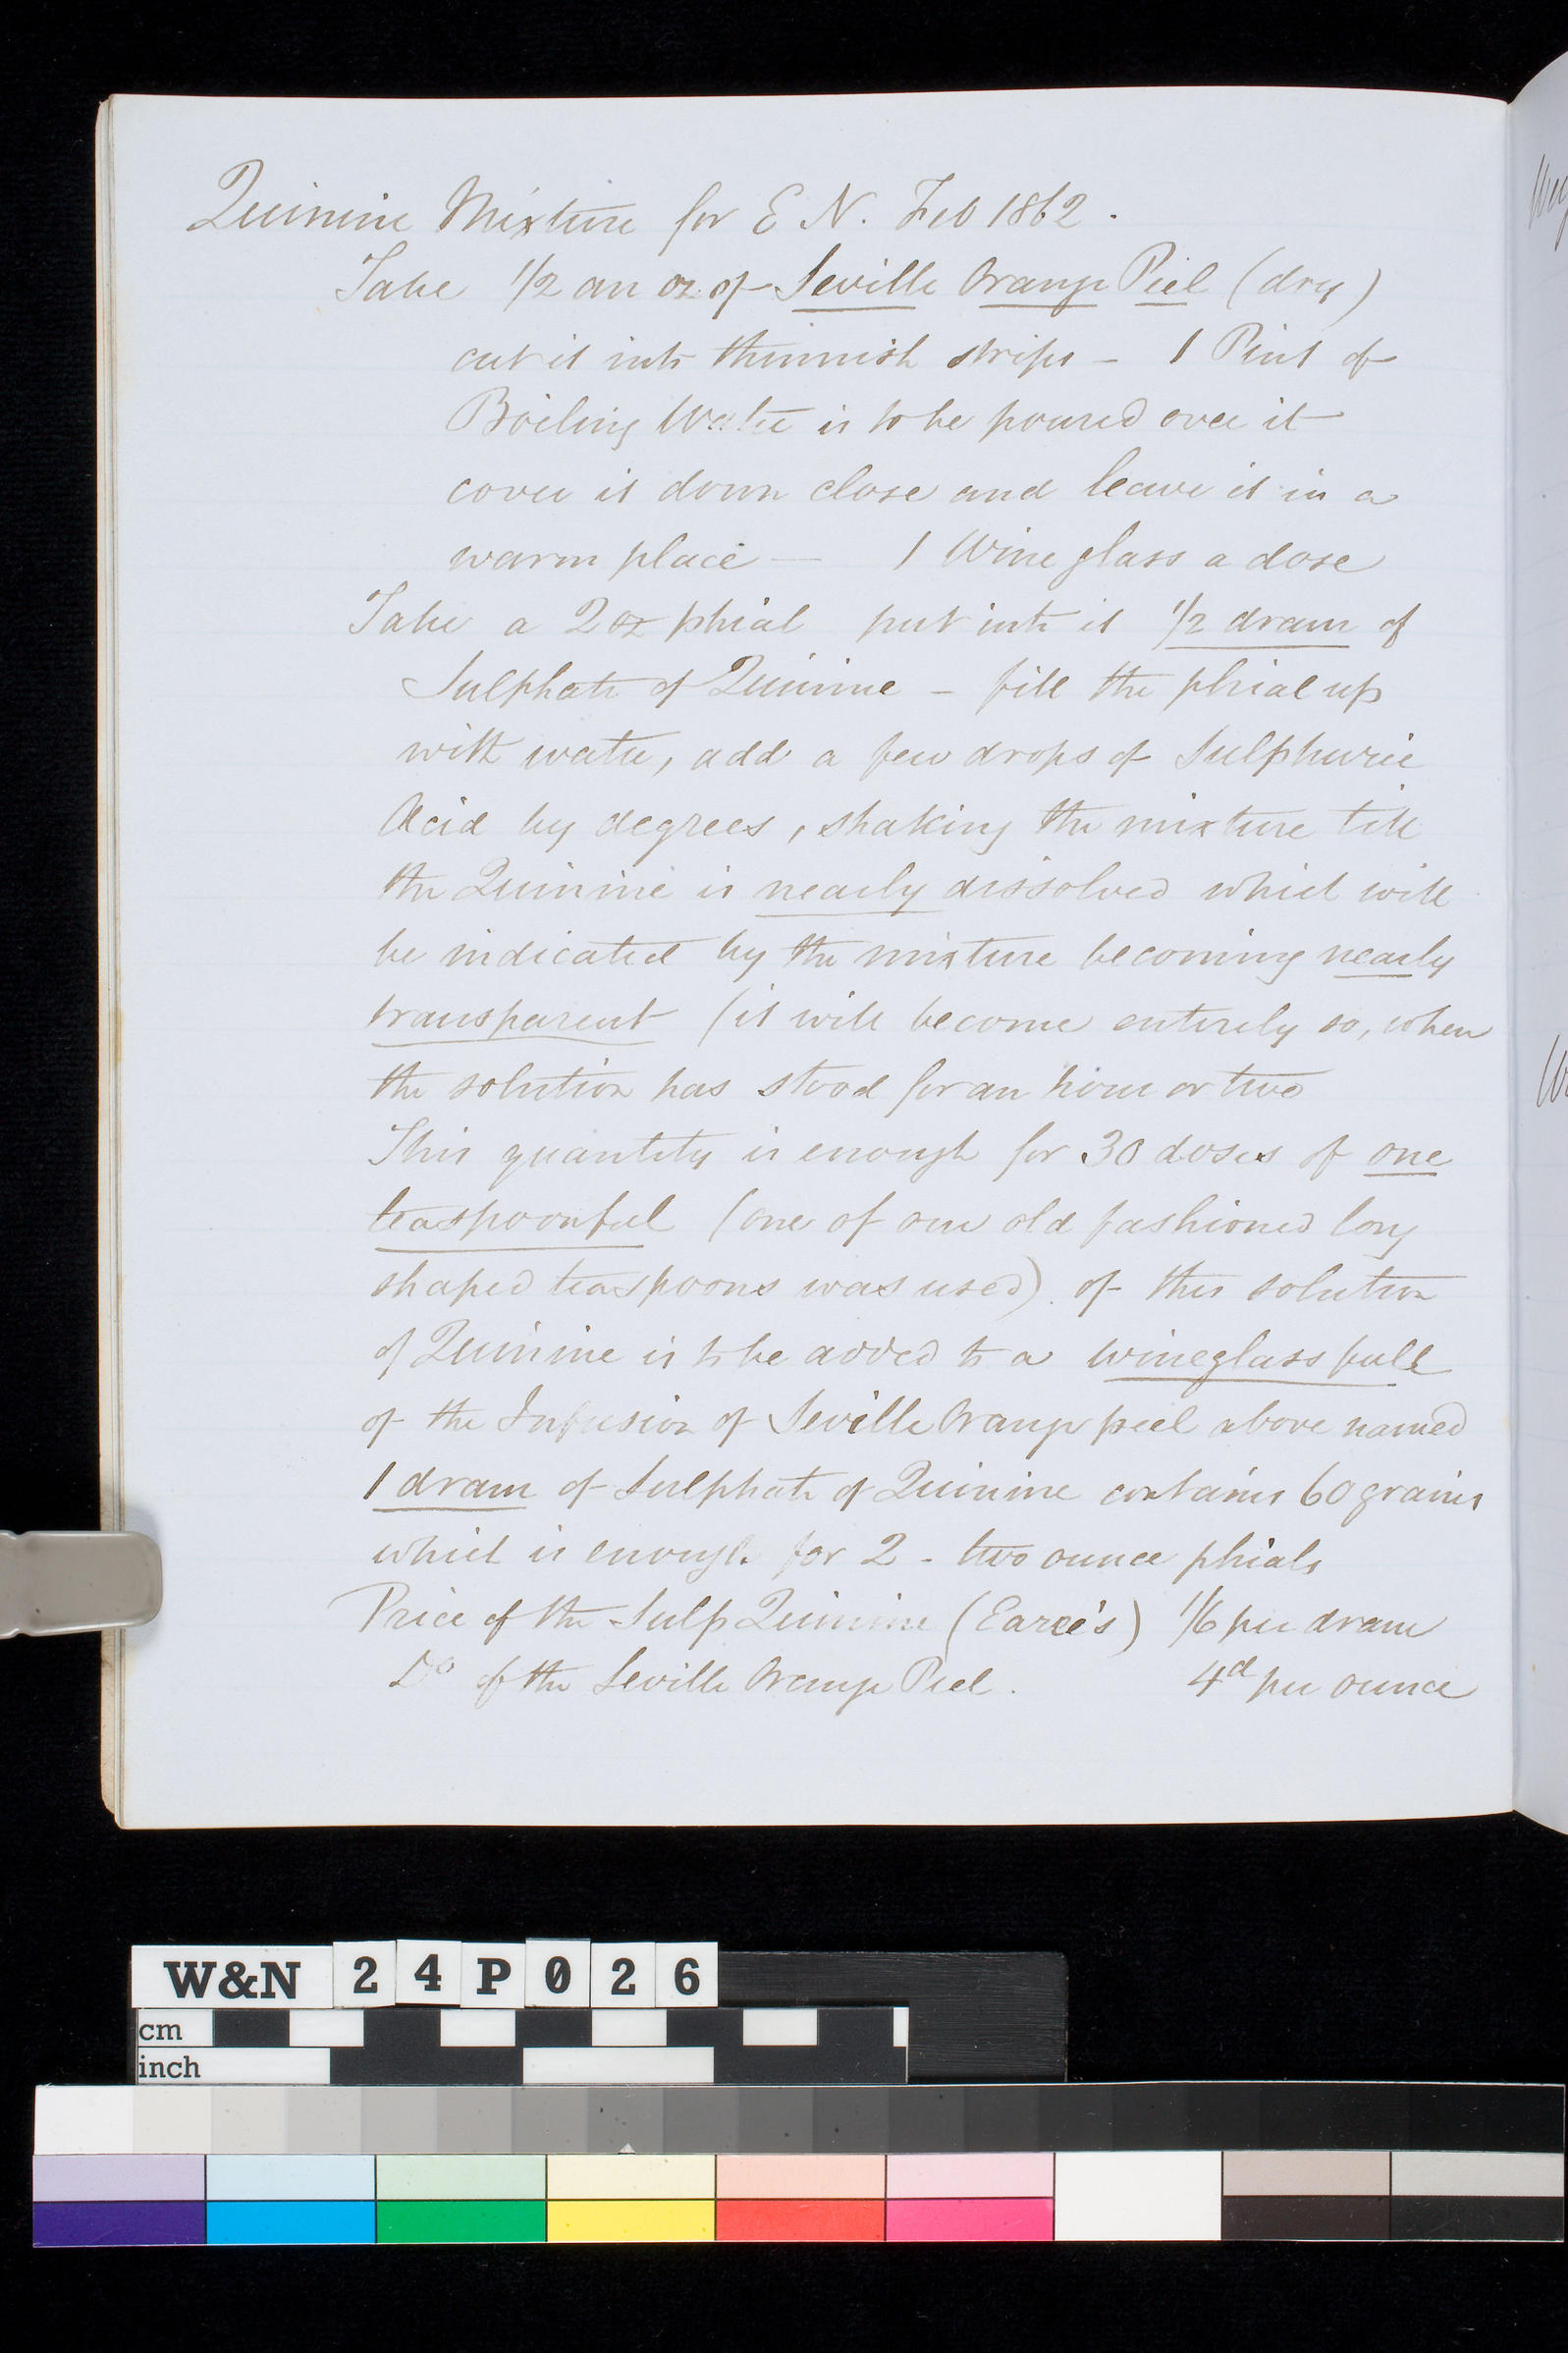 Quinine Mixture for E N. Feb 1862.
Take 1/2 an oz of Seville Orange Peel (dry)
cut it into thinnish strips - 1 Pint of
Boiling Water is to be poured over it
cover it down close and leave it in a
warm place — 1 Wine glass a dose
Take a 2 oz phial put into it 1/2 dram of
Sulphate of Quinine - fill the phial up
with water, add a few drops of Sulphuric
Acid by degrees, shaking the mixture till
the Quinine is nearly dissolved which will
be indicated by the mixture becoming nearly
transparent (it will become entirely so, when
the solution has stood for an hour or two
This quantity is enough for 30 doses of one
teaspoonful (one of our old fashioned long
shaped teaspoons was used). of this solution
of Quinine is to be added to a wineglass full
of the Infusion of Seville Orange peel above named
1 dram of Sulphate of Quinine contains 60 grains
which is enough for 2 - two ounce phials
Price of the Sulp Quinine ( ) 1/6 per dram
Do of the Seville Orange Peel. 4d per ounce
W&N 24P026
cm
inch